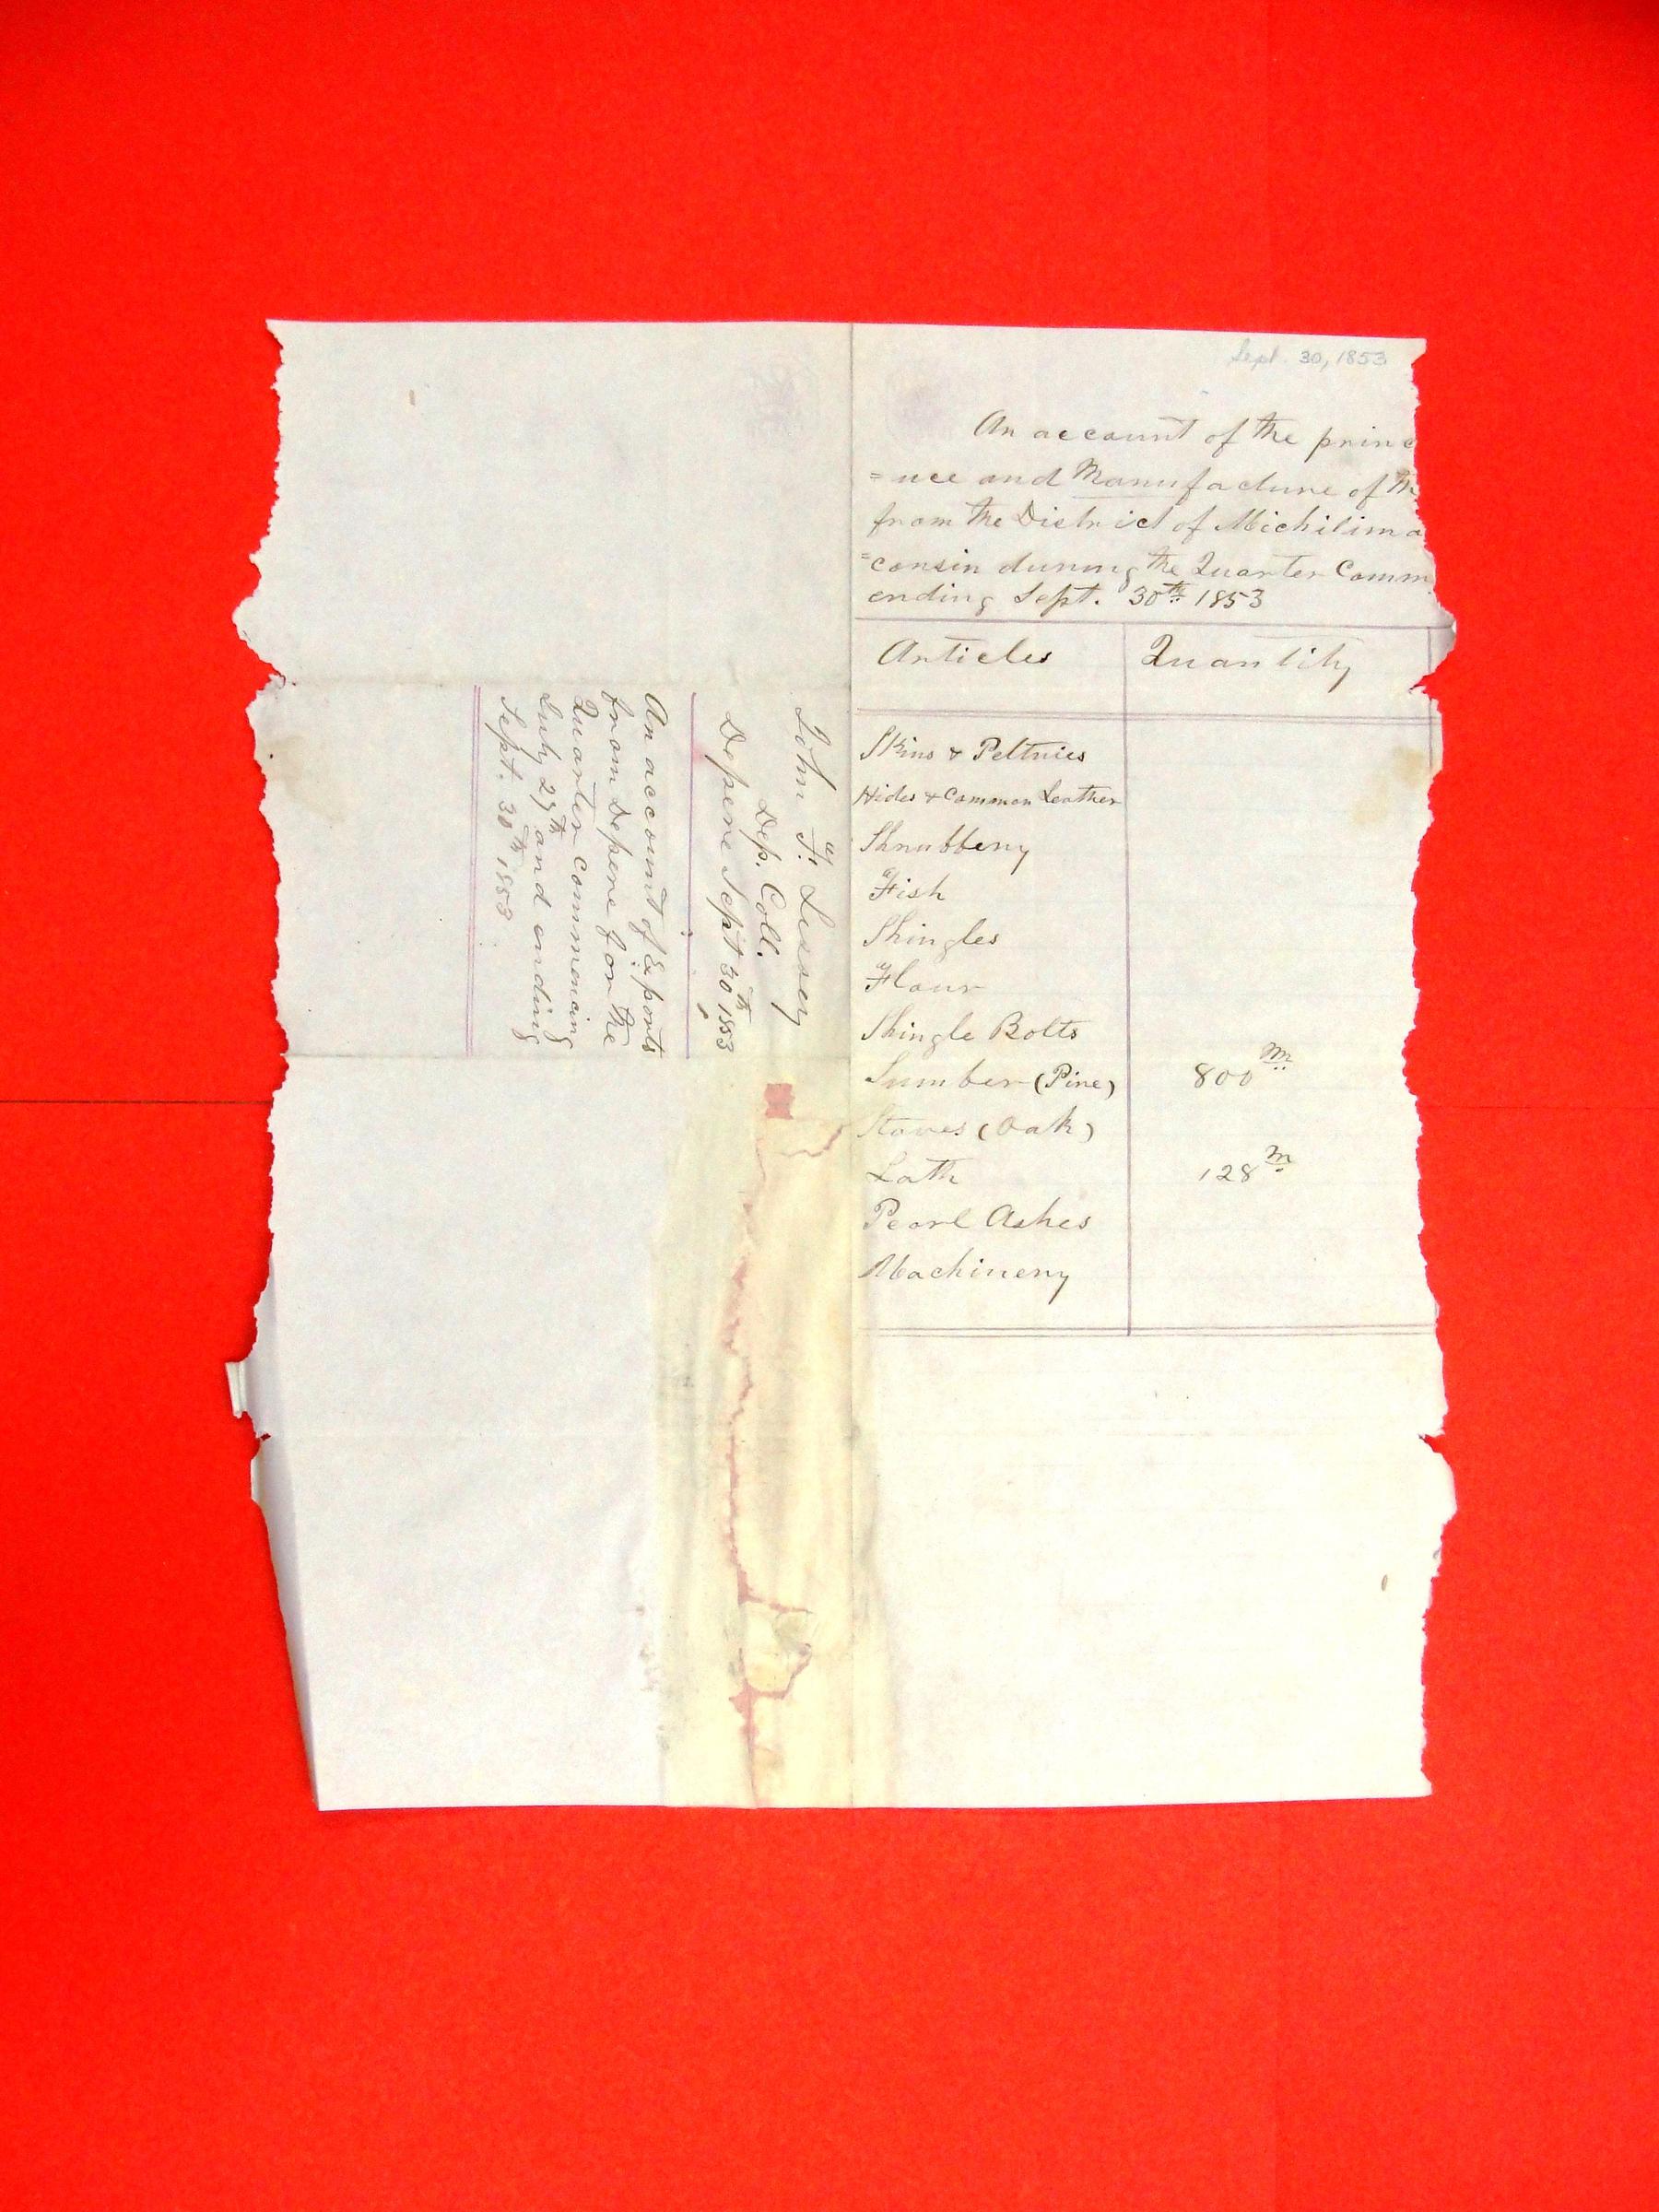 Sept. 30, 1853
An account of the princ
=uce and Manufacture of th
from the District of Michilima
=consin during the Quarter Comm
ending Sept. 30th 1853
Articles Quantity
Skins & Peltries
Hides & Common Leather
Shrubbery
Fish
Shingles
Flour
Shingle Bolts
Lumber (Pine) 800 m
Staves (Oak)
Lath 128 m
Pearl Ashes
Machinery
John F. Lessey
Dep. Coll.
Depere Sept 30th 1853
An account of Exports
from Depere for the
Quarter Commencing
July 27th and ending
Sept. 30th 1853